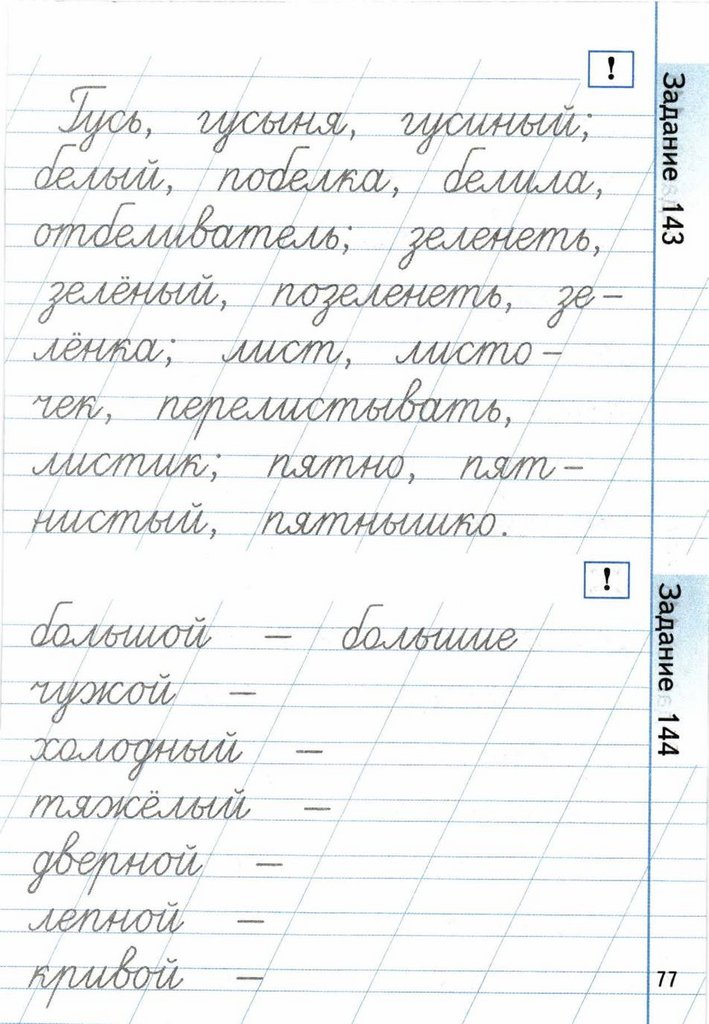 !
Задание 143
Гусь, гусыня, гусиный;
белый, побелка, белила,
отбеливатель; зеленеть,
зелёный, позеленеть, зе-
лёнка; лист, листо-
чек, перелистывать,
листик; пятно, пят-
нистый, пятнышко.
!
Задание 144
большой – большие
чужой –
холодный –
тяжёлый –
дверной –
лепной –
кривой –
77